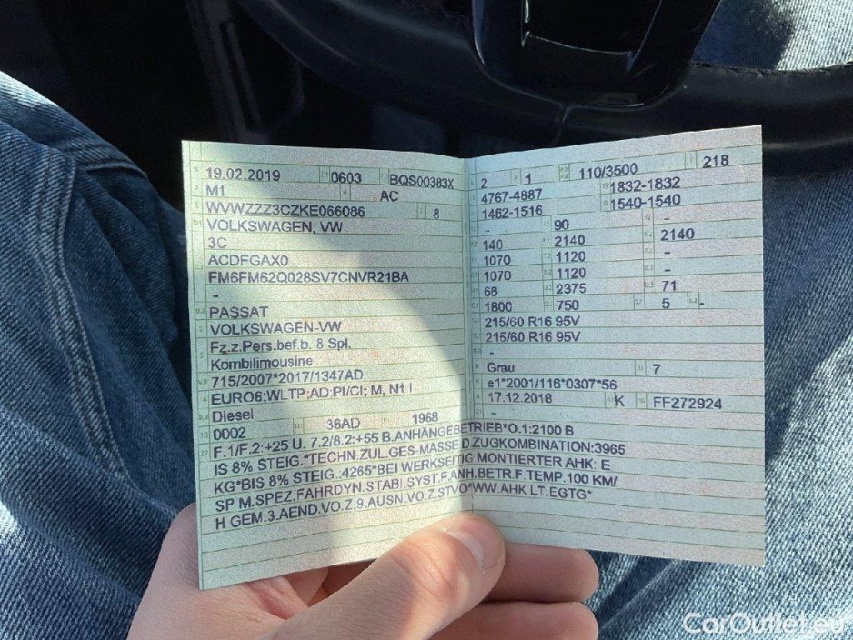 19.02.2019 0603 BQS00383X
M1 AC
WVWZZZ3CZKE066086 8
VOLKSWAGEN, VW
3C
ACDFGAX0
FM6FM62Q028SV7CNVR21BA
-
PASSAT
VOLKSWAGEN-VW
Fz.z.Pers.bef.b. 8 Spl.
Kombilimousine
715/2007*2017/1347AD
EURO6;WLTP;AD;PI/CI; M, N1 I
Diesel
0002 36AD 1968
2 1 110/3500 218
4767-4887 1832-1832
1462-1516 1540-1540
- 90 -
140 2140 2140
1070 1120 -
1070 1120 -
68 2375 71
1800 750 5 -
215/60 R16 95V
215/60 R16 95V
-
Grau 7
e1*2001/116*0307*56
17.12.2018 K FF272924
-
F.1/F.2:+25 U. 7.2/8.2:+55 B.ANHÄNGEBETRIEB*O.1:2100 B
IS 8% STEIG.*TECHN.ZUL.GES-MASSE D.ZUGKOMBINATION:3965
KG*BIS 8% STEIG.:4265*BEI WERKSEITIG MONTIERTER AHK: E
SP M.SPEZ.FAHRDYN.STABI.SYST.F.ANH.BETR.F.TEMP.100 KM/
H GEM.3.AEND.VO.Z.9.AUSN.VO.Z.STVO*WW.AHK LT.EGTG*
CarOutlet.eu